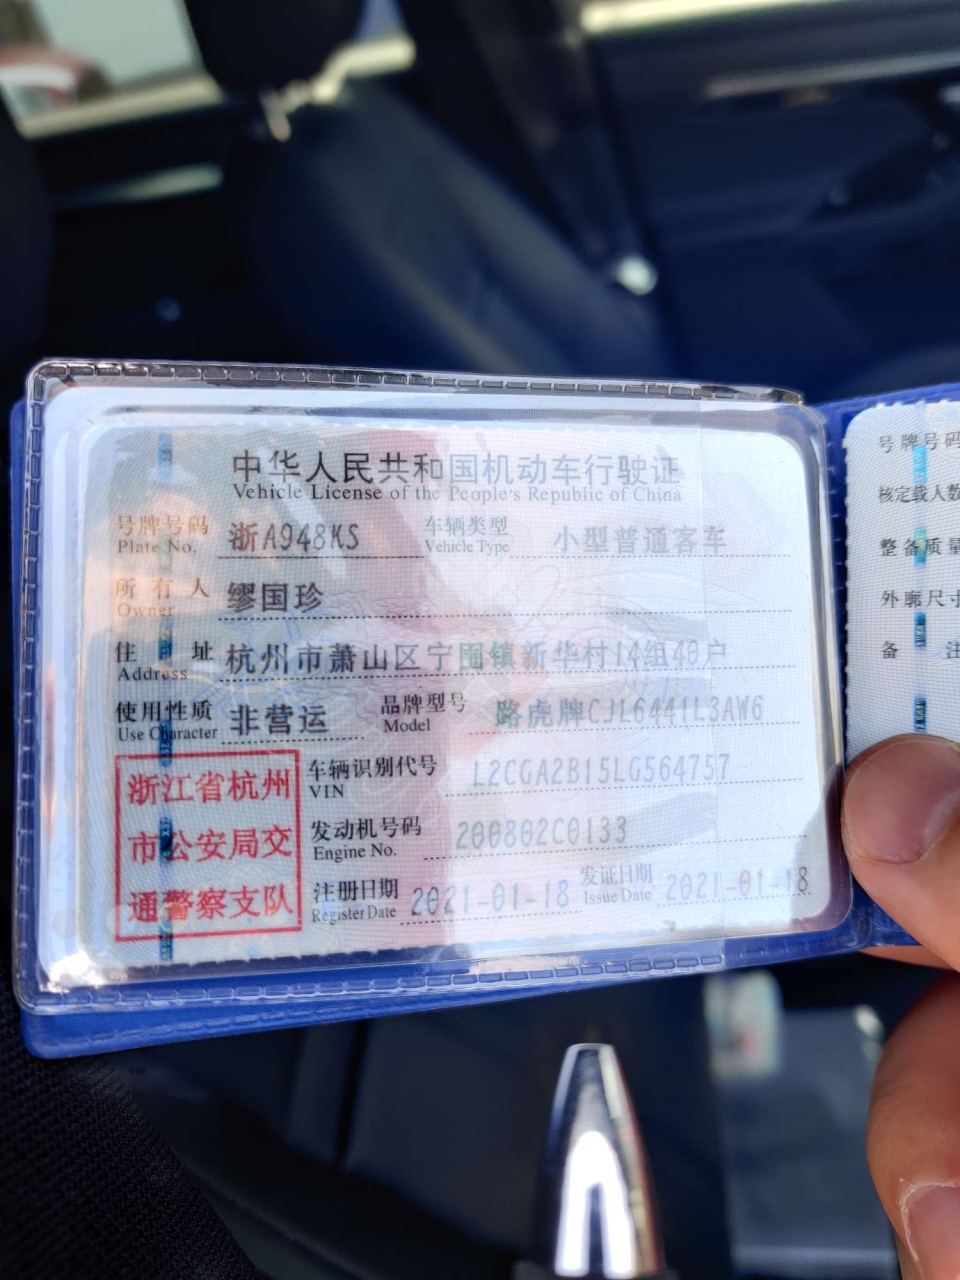 中华人民共和国机动车行驶证
Vehicle License of the People's Republic of China
号牌号码 浙A948KS 车辆类型 小型普通客车
Plate No. Vehicle Type
所有人 缪国珍
Owner
住址 杭州市萧山区宁围镇新华村14组40户
Address
使用性质 非营运 品牌型号 路虎牌CJL6441L3AW6
Use Character Model
浙江省杭州
市公安局交
通警察支队
车辆识别代号 L2CGA2B15LG564757
VIN
发动机号码 200802C0133
Engine No.
注册日期 2021-01-18 发证日期 2021-01-18
Register Date Issue Date
号牌号码
核定载人数
整备质量
外廓尺寸
备注